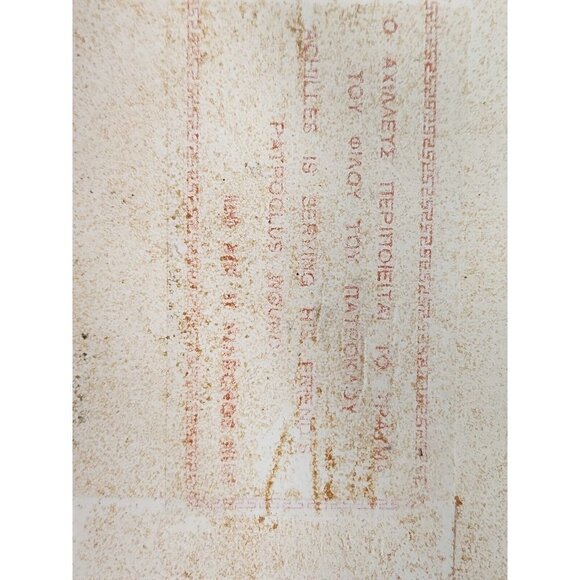 Ο ΑΧΙΛΛΕΥΣ ΠΕΡΙΠΟΙΕΙΤΑΙ ΤΟ ΤΡΑΥΜΑ
ΤΟΥ ΦΙΛΟΥ ΤΟΥ ΠΑΤΡΟΚΛΟΥ
ACHILLES IS SERVING HIS FRIENDS
PATROCLUS WOUND